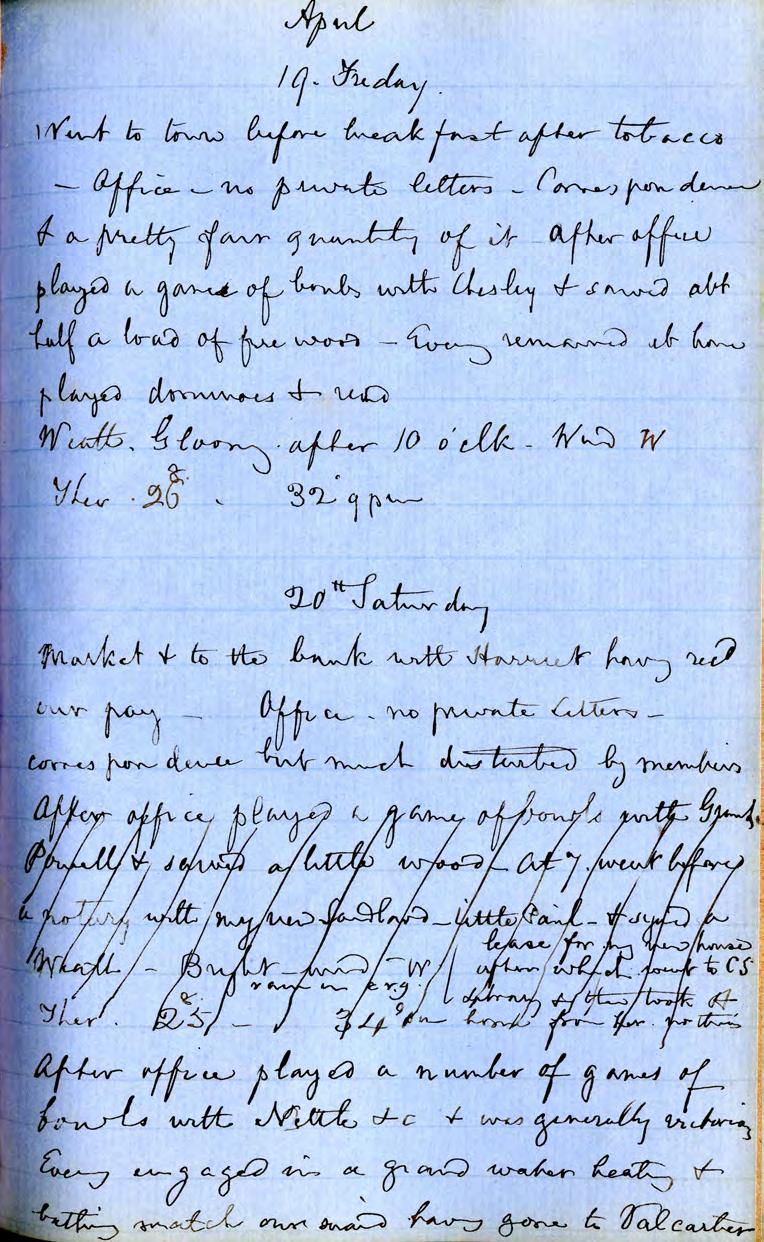 April
19. Friday.
Went to town before breakfast after tobacco
- Office - no private letters - Correspondence
& a pretty fair quantity of it After office
played a game of bowls with Chesley & sawed abt
half a load of fire wood - Eveng remained at home
played dominoes & read
Weath. Gloomy after 10 o'clk - Wind W
Ther. 26 8. 32° 9 pm
20th Saturday
Market & to the bank with Harriet having recd
our pay - Office - no private letters -
correspondence but much disturbed by members
After office played a game of bowls with
Powell & sawed a little wood - At 7. went before
a notary with my new landlord - little Paul - & signed a
lease for my new house
Weath - Bright - wind - W after which went to CS
rain in evg. library & then took
Ther. 25 8. - 34° 9 pm home from
After office played a number of games of
bowls with Nettle &c & was generally victorious
Eveng engaged in a grand water heating &
bathing match our maid having gone to Valcartier